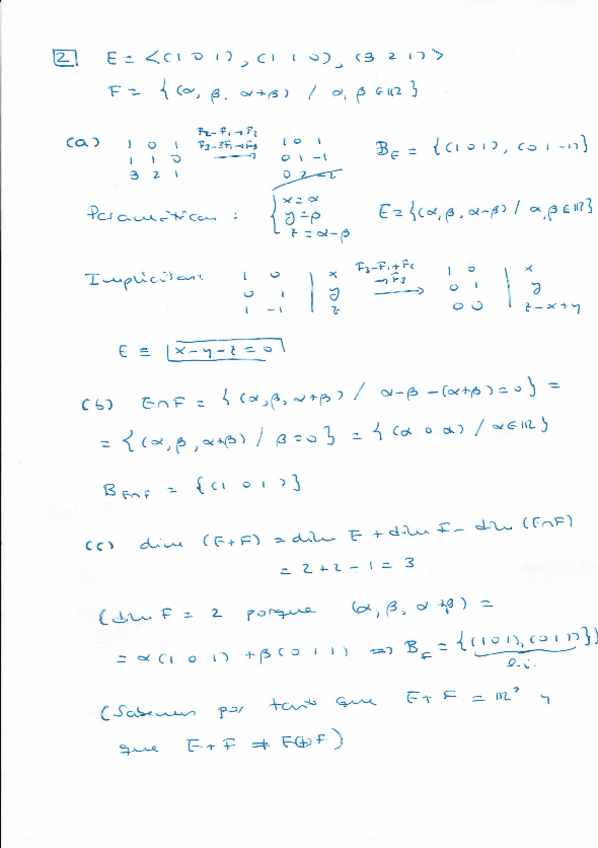 2 E = <(1 0 1), (1 1 0), (3 2 1)>
F = {(α, β, α+β) / α, β ∈ ℝ}
(a) 1 0 1 F2-F1→F2 1 0 1 B_E = {(1 0 1), (0 1 -1)}
1 1 0 F3-3F1→F3 0 1 -1
3 2 1 0 2 -2
Paramétricas: { x=α y=β z=α-β E={(α, β, α-β) / α, β ∈ ℝ}
Implícitas: 1 0 | x F3-F1+F2 →F3 1 0 | x
0 1 | y 0 1 | y
1 -1 | z 0 0 | z-x+y
E ≡ x-y-z=0
(b) E∩F = {(α, β, α+β) / α-β-(α+β)=0} =
= {(α, β, α+β) / β=0} = {(α 0 α) / α∈ℝ}
B_E∩F = {(1 0 1)}
(c) dim (E+F) = dim E + dim F - dim (E∩F)
= 2+2-1 = 3
(dim F = 2 porque (α, β, α+β) =
= α(1 0 1) + β(0 1 1) ⇒ B_F = {(1 0 1), (0 1 1)})
l.i.
(Sabemos por tanto que E+F = ℝ³ y
que E+F ≠ E⊕F)